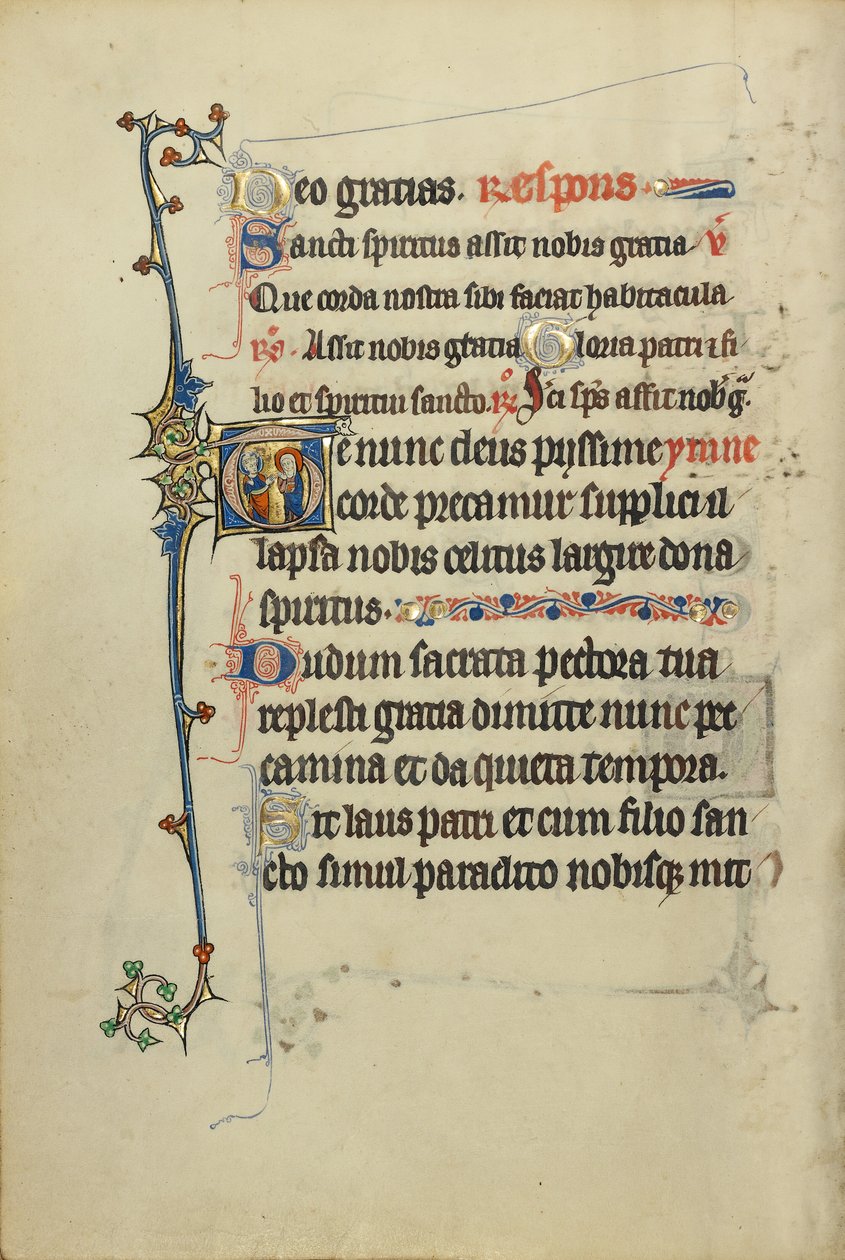 Deo gratias. Respons
Sancti spiritus assit nobis gratia V
Que corda nostra sibi faciat habitacula
R. Assit nobis gratia Gloria patri ⁊ fi
lio et spiritui sancto. R Sci sps assit nob g.
Te nunc deus pijssime ymne
corde precamur supplici il
lapsa nobis celitus largire dona
spiritus.
Dudum sacrata pectora tua
replesti gratia dimitte nunc pec
camina et da quieta tempora.
Sit laus patri et cum filio san
cto simul paraclito nobisq mit